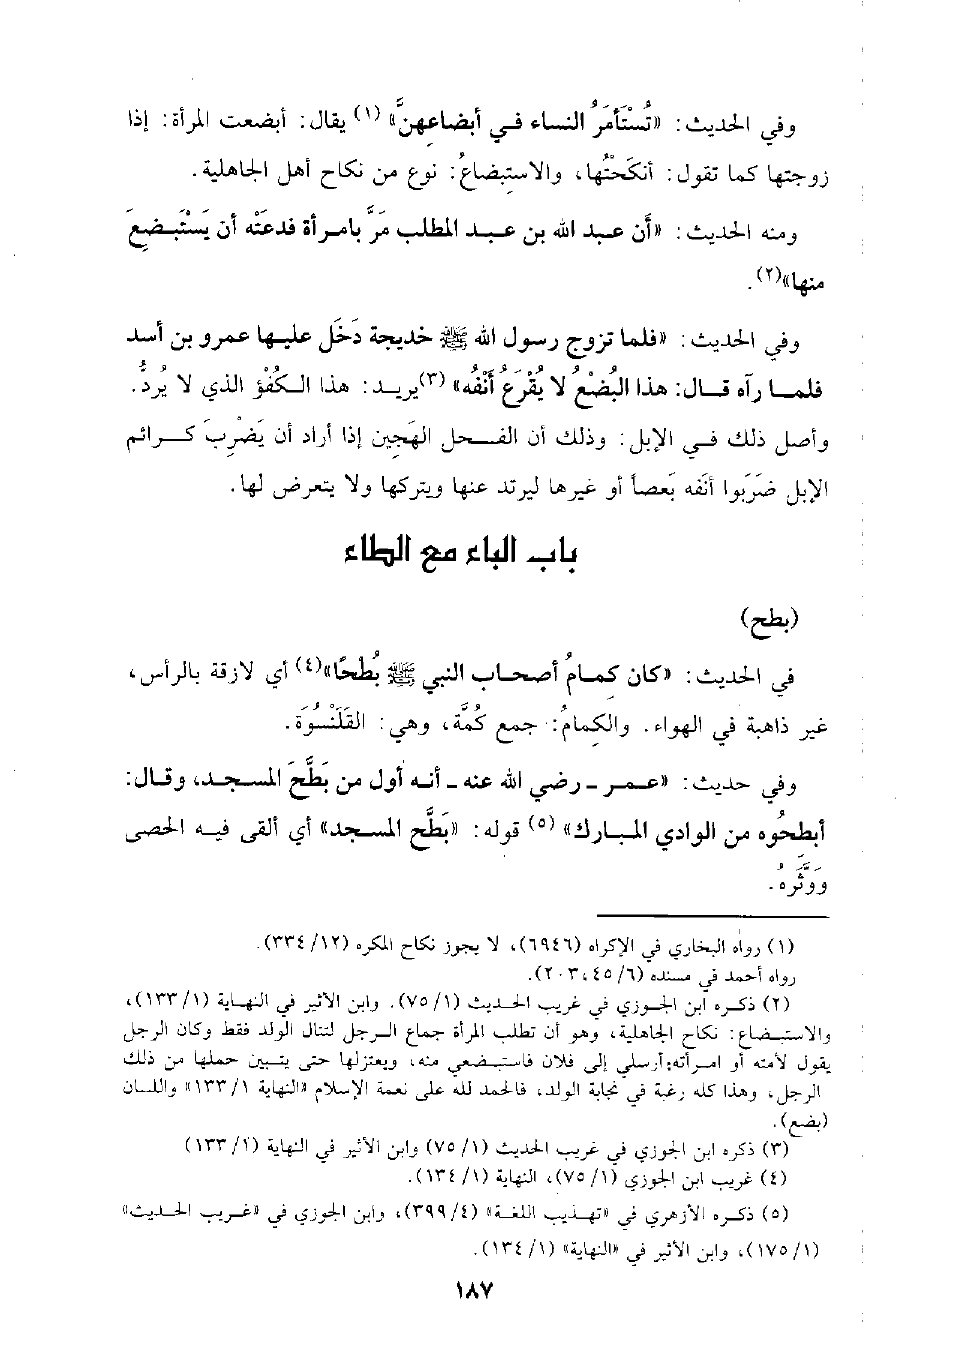 وفي الحديث: «تُسْتَأمَرُ النساء في أبضاعهنَّ» (١) يقال: أبضعت المرأة: إذا
زوجتها كما تقول: أنكَحْتُها، والاستِبضاعُ: نوع من نكاح أهل الجاهلية.
ومنه الحديث: «أن عبد الله بن عبد المطلب مَرَّ بامرأة فدعَتْه أن يَسْتَبضعَ
منها»(٢).
وفي الحديث: «فلما تزوج رسول الله ﷺ خديجة دَخَل عليها عمرو بن أسد
فلما رآه قال: هذا البُضْعُ لا يُقْرَعُ أنْفُه» (٣) يريد: هذا الكُفْؤ الذي لا يُردُّ.
وأصل ذلك في الإبل: وذلك أن الفحل الهَجين إذا أراد أن يَضْرِبَ كرائم
الإبل ضَرَبوا أنَفه بَعصاً أو غيرها ليرتد عنها ويتركها ولا يتعرض لها.
باب الباء مع الطاء
(بطح)
في الحديث: «كان كمامُ أصحاب النبي ﷺ بُطْحًا»(٤) أي لازقة بالرأس،
غير ذاهبة في الهواء. والكِمامُ: جمع كُمَّة، وهي: القَلَنْسُوَة.
وفي حديث: «عمر - رضي الله عنه - أنه أول من بَطَّحَ المسجد، وقال:
أبطحُوه من الوادي المبارك» (٥) قوله: «بَطَّح المسجد» أي ألقى فيه الحصى
وَوَثَّرَهُ.
(١) رواه البخاري في الإكراه (٦٩٤٦)، لا يجوز نكاح المكره (١٢/ ٣٣٤).
رواه أحمد في مسنده (٦/ ٤٥، ٢٠٣).
(٢) ذكره ابن الجوزي في غريب الحديث (١/ ٧٥). وابن الأثير في النهاية (١/ ١٣٣)،
والاستبضاع: نكاح الجاهلية، وهو أن تطلب المرأة جماع الرجل لتنال الولد فقط وكان الرجل
يقول لأمته أو امرأته: أرسلي إلى فلان فاستبضعي منه، ويعتزلها حتى يتبين حملها من ذلك
الرجل، وهذا كله رغبة في نجابة الولد، فالحمد لله على نعمة الإسلام «النهاية ١/ ١٣٣» واللسان
(بضع).
(٣) ذكره ابن الجوزي في غريب الحديث (١/ ٧٥) وابن الأثير في النهاية (١/ ١٣٣)
(٤) غريب ابن الجوزي (١/ ٧٥)، النهاية (١/ ١٣٤).
(٥) ذكره الأزهري في «تهذيب اللغة» (٤/ ٣٩٩)، وابن الجوزي في «غريب الحديث»
(١/ ١٧٥)، وابن الأثير في «النهاية» (١/ ١٣٤).
١٨٧